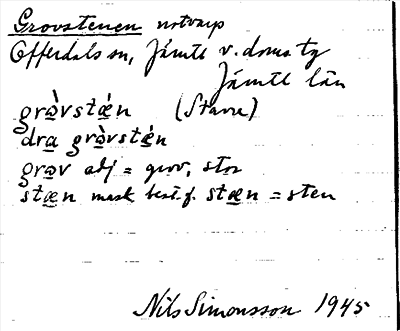 Grovstenen notvarp
Offerdals sn, Jämtl v. doms tg
Jämtl län
grə̀vstǽn (Stavre)
dra grə̀vstǽn
grəv adj = grov, stor
stæn mask best.f. stæn = sten
Nils Simonsson 1945